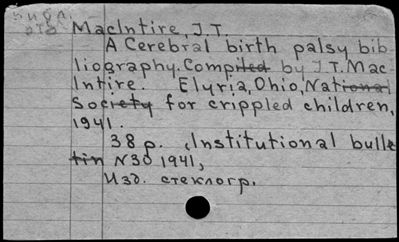 MacIntire, J.T.
A Cerebral birth palsy bib
liography. Compiled by J.T. Mac
Intire. Elyria, Ohio, National
Society for crippled children,
1941.
38 p. (Institutional bulle
tin N30 1941,
Изд. стеклогр.